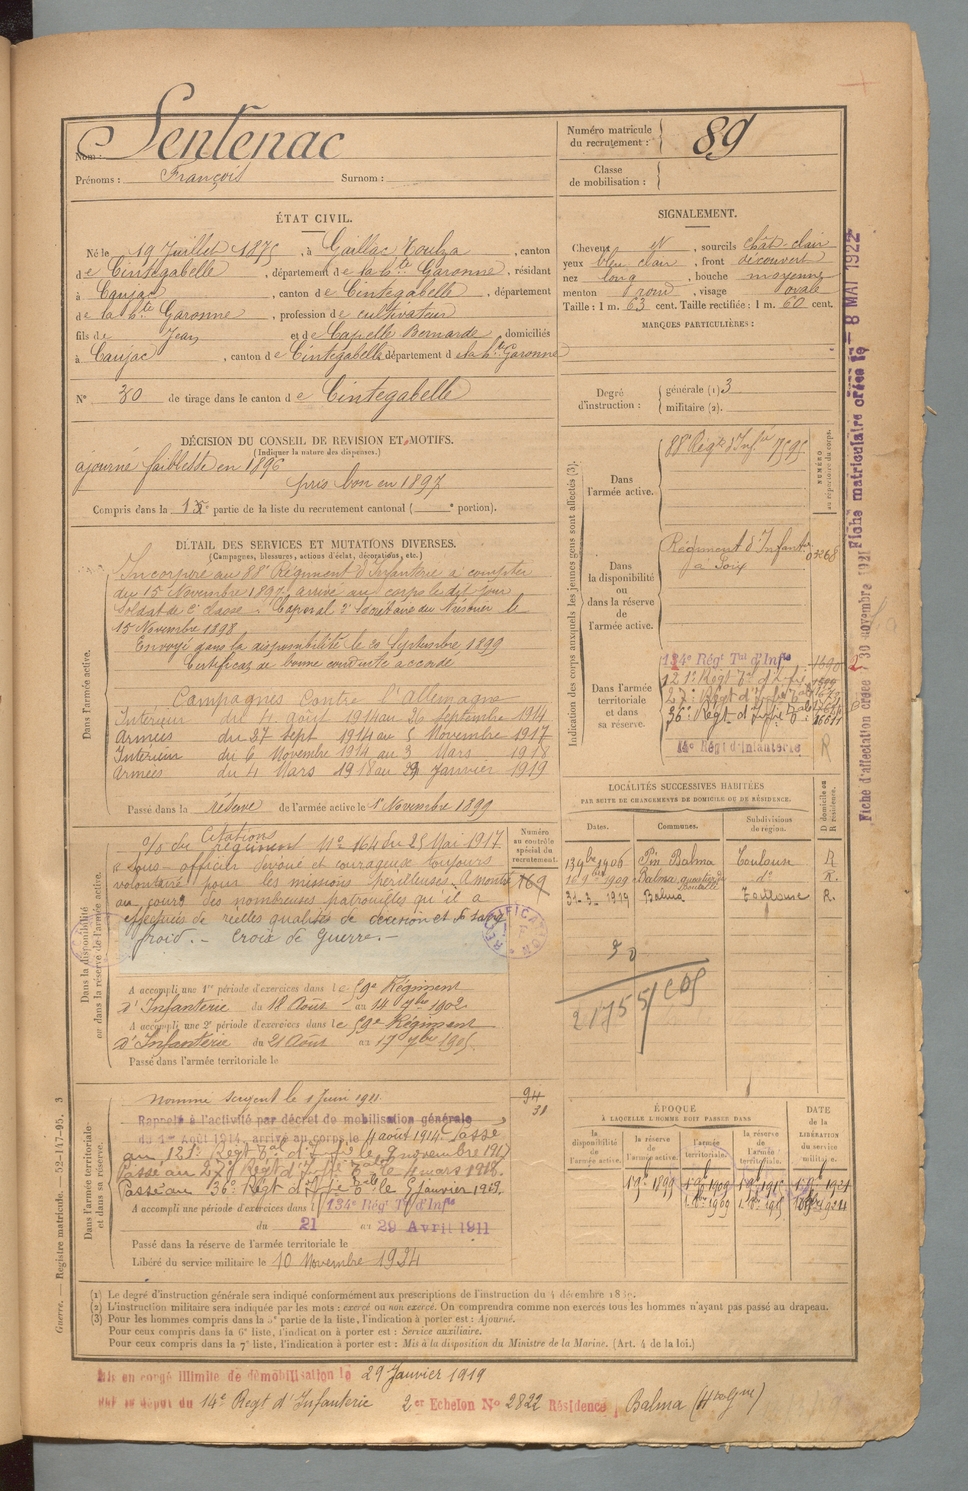 Nom : Sentenac
Prénoms : François Surnom :
Numéro matricule du recrutement : 89
Classe de mobilisation :
ÉTAT CIVIL.
Né le 19 Juillet 1875, à Gaillac Toulza, canton
de Cintegabelle, département de la hte Garonne, résidant
à Caujac, canton de Cintegabelle, département
de la hte Garonne, profession de cultivateur
fils de Jean et de Capelle Bernarde, domiciliés
à Caujac, canton de Cintegabelle département de la hte Garonne
N° 30 de tirage dans le canton de Cintegabelle
SIGNALEMENT.
Cheveux N, sourcils chât-clair
yeux bleu clair, front découvert
nez long, bouche moyenne
menton rond, visage ovale
Taille : 1 m. 63 cent. Taille rectifiée : 1 m. 60 cent.
MARQUES PARTICULIÈRES :
Degré d'instruction : générale (1) 3
militaire (2).
DÉCISION DU CONSEIL DE REVISION ET MOTIFS.
(Indiquer la nature des dispenses.)
ajourné faiblesse en 1896
pris bon en 1897
Compris dans la 1re partie de la liste du recrutement cantonal ( e portion).
DÉTAIL DES SERVICES ET MUTATIONS DIVERSES.
(Campagnes, blessures, actions d'éclat, décorations, etc.)
Dans l'armée active.
Incorporé au 88e Régiment d'Infanterie à compter
du 15 Novembre 1897, arrivé au corps le dit jour
Soldat de 2e classe. Caporal 2e Secrétaire du Trésorier le
15 Novembre 1898
Envoyé dans la disponibilité le 20 Septembre 1899
Certificat de bonne conduite accordé
Campagnes Contre l'allemagne
Intérieur du 4 août 1914 au 26 Septembre 1914
Armées du 27 Sept 1914 au 5 Novembre 1917
Intérieur du 6 Novembre 1914 au 3 Mars 1918
Armées du 4 Mars 1918 au 29 Janvier 1919
Passé dans la réserve de l'armée active le 1er Novembre 1899
Dans la disponibilité ou dans la réserve de l'armée active.
Numéro au contrôle spécial du recrutement.
169
Citations
O/ du régiment No 164 du 25 Mai 1917
« Sous-officier dévoué et courageux toujours
volontaire pour les missions périlleuses. A montré
au cours des nombreuses patrouilles qu'il a
effectuées de réelles qualités de décision et de sang
froid. - Croix de Guerre. -
RECTIFICATION
A accompli une 1re période d'exercices dans le 59e Régiment
d'Infanterie du 18 Août au 14 7bre 1902
A accompli une 2e période d'exercices dans le 59e Régiment
d'Infanterie du 21 Août au 17 7bre 1905
Passé dans l'armée territoriale le
Dans l'armée territoriale et dans sa réserve.
94
31
Nommé sergent le 1 Juin 1911
Rappelé à l'activité par décret de mobilisation générale
du 1er Août 1914, arrivé au corps le 4 août 1914. Passé
au 121e Régt Tal d'Ifie le 7 novembre 1917
Passé au 27e Régt d'Ifie Tale le 4 mars 1918.
Passé au 36e Régt d'Ifie Tale le 5 Janvier 1919.
A accompli une période d'exercices dans le 134e Régt Tal d'Infie
du 21 au 29 Avril 1911
Passé dans la réserve de l'armée territoriale le
Libéré du service militaire le 10 Novembre 1924
Indication des corps auxquels les jeunes gens sont affectés (3).
NUMÉRO au répertoire du corps.
Dans l'armée active.
88e Régt d'Infie 7595
Dans la disponibilité ou dans la réserve de l'armée active.
Régiment d'Infantie
à Foix 03268
Dans l'armée territoriale et dans sa réserve.
134e Régt Tal d'Infie 1690
121e Régt Tal d'Ifie
27e Régt d'Ifie Tale
36e Régt d'Ifie Tale
14e Régt d'Infanterie R
LOCALITÉS SUCCESSIVES HABITÉES
PAR SUITE DE CHANGEMENTS DE DOMICILE OU DE RÉSIDENCE.
Dates. Communes. Subdivisions de région. D domicile ou R résidence.
13 9bre 1906 Pin Balma Toulouse R
1909 Balma do R.
31-3-1919 Balma Toulouse R.
50
21755
ÉPOQUE
À LAQUELLE L'HOMME DOIT PASSER DANS
DATE DE LA LIBÉRATION DU SERVICE militaire.
la disponibilité de l'armée active. la réserve de l'armée active. l'armée territoriale. la réserve de l'armée territoriale.
1 9bre 1899 1 9bre 1909 1 9bre 1915 1921
1. 9bre 1909 1. 9bre 1915 10 9bre 1924
(1) Le degré d'instruction générale sera indiqué conformément aux prescriptions de l'instruction du 4 décembre 1889.
(2) L'instruction militaire sera indiquée par les mots : exercé ou non exercé. On comprendra comme non exercés tous les hommes n'ayant pas passé au drapeau.
(3) Pour les hommes compris dans la 5e partie de la liste, l'indication à porter est : Ajourné.
Pour ceux compris dans la 6e liste, l'indication à porter est : Service auxiliaire.
Pour ceux compris dans la 7e liste, l'indication à porter est : Mis à la disposition du Ministre de la Marine. (Art. 4 de la loi.)
Mis en congé illimité de démobilisation le 29 Janvier 1919
par le dépôt du 14e Régt d'Infanterie 2er Echelon No 2822 Résidence Balma (Hte Gne)
Guerre. — Registre matricule. — 52-117-95. 3
Fiche d'affectation créée le 30 novembre 1921
Fiche matriculaire créée le - 8 MAI 1922